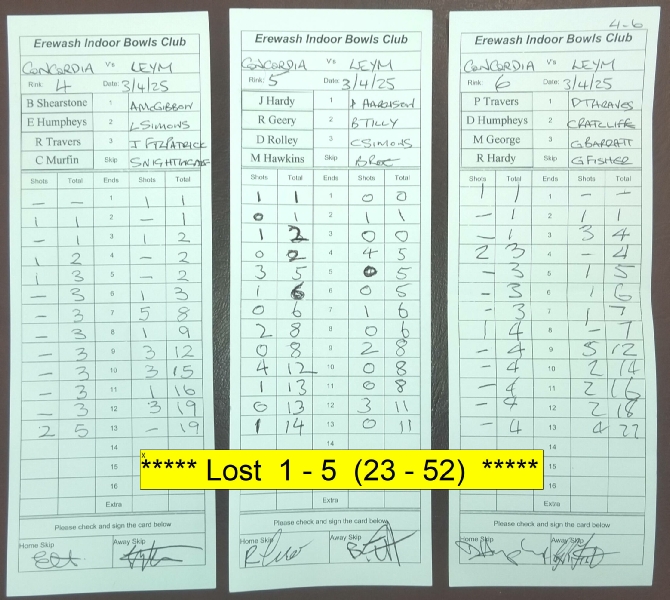 Erewash Indoor Bowls Club
CONCORDIA Vs LEYM
Rink: 4 Date: 3/4/25
B Shearstone 1 A McGIBBON
E Humpheys 2 L SIMONS
R Travers 3 J FITZPATRICK
C Murfin Skip S NIGHTINGALE
Shots Total Ends Shots Total
- - 1 1 1
1 1 2 - 1
- 1 3 1 2
1 2 4 - 2
1 3 5 - 2
- 3 6 1 3
- 3 7 5 8
- 3 8 1 9
- 3 9 3 12
- 3 10 3 15
- 3 11 1 16
- 3 12 3 19
2 5 13 - 19
14
15
16
Extra
Please check and sign the card below
Home Skip Away Skip
Erewash Indoor Bowls Club
CONCORDIA Vs LEYM
Rink: 5 Date: 3/4/25
J Hardy 1 P HARRISON
R Geery 2 B TILLY
D Rolley 3 C SIMONS
M Hawkins Skip
Shots Total Ends Shots Total
1 1 1 0 0
0 1 2 1 1
1 2 3 0 0
0 2 4 4 5
3 5 5 0 5
1 6 6 0 5
0 6 7 1 6
2 8 8 0 6
0 8 9 2 8
4 12 10 0 8
1 13 11 0 8
0 13 12 3 11
1 14 13 0 11
14
15
16
Extra
Please check and sign the card below
Home Skip Away Skip
4-6
Erewash Indoor Bowls Club
CONCORDIA Vs LEYM
Rink: 6 Date: 3/4/25
P Travers 1 D THRAVES
D Humpheys 2 C RATCLIFFE
M George 3 G BARRATT
R Hardy Skip G FISHER
Shots Total Ends Shots Total
1 1 1 - -
- 1 2 1 1
- 1 3 3 4
2 3 4 - 4
- 3 5 1 5
- 3 6 1 6
- 3 7 1 7
1 4 8 - 7
- 4 9 5 12
- 4 10 2 14
- 4 11 2 16
- 4 12 2 18
- 4 13 4 22
14
15
16
Extra
Please check and sign the card below
Home Skip Away Skip
x
***** Lost 1 - 5 (23 - 52) *****